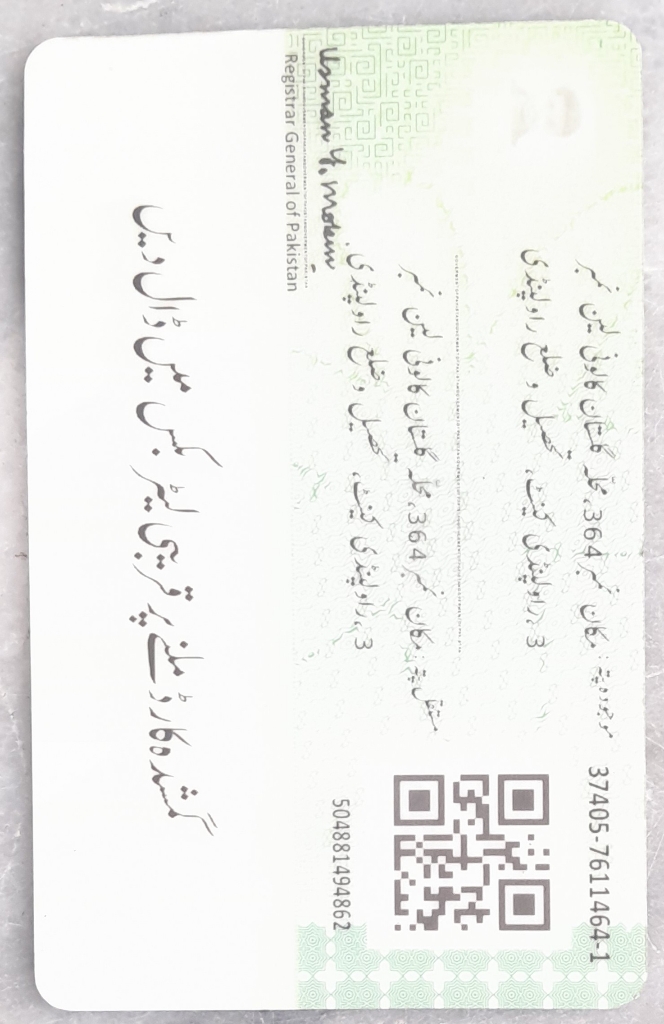 37405-7611464-1
موجودہ پتہ: مکان نمبر 364، محلہ گلستان کالونی لین نمبر
3، راولپنڈی کینٹ، تحصیل و ضلع راولپنڈی
مستقل پتہ: مکان نمبر 364، محلہ گلستان کالونی لین نمبر
3، راولپنڈی کینٹ، تحصیل و ضلع راولپنڈی
504881494862
Usman Y. Mobin
Registrar General of Pakistan
گمشدہ کارڈ ملنے پر قریبی لیٹر بکس میں ڈال دیں